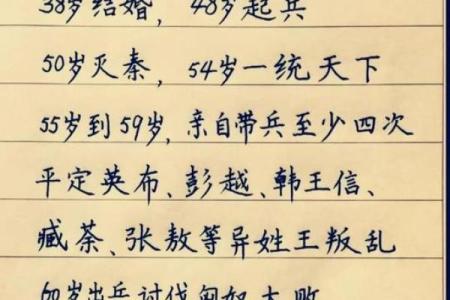 38岁结婚，48岁起兵
50岁灭秦，54岁一统天下
55岁到59岁，亲自带兵至少四次
平定英布、彭越、韩王信、
臧荼、张敖等异姓王叛乱
60岁出兵讨伐匈奴大败